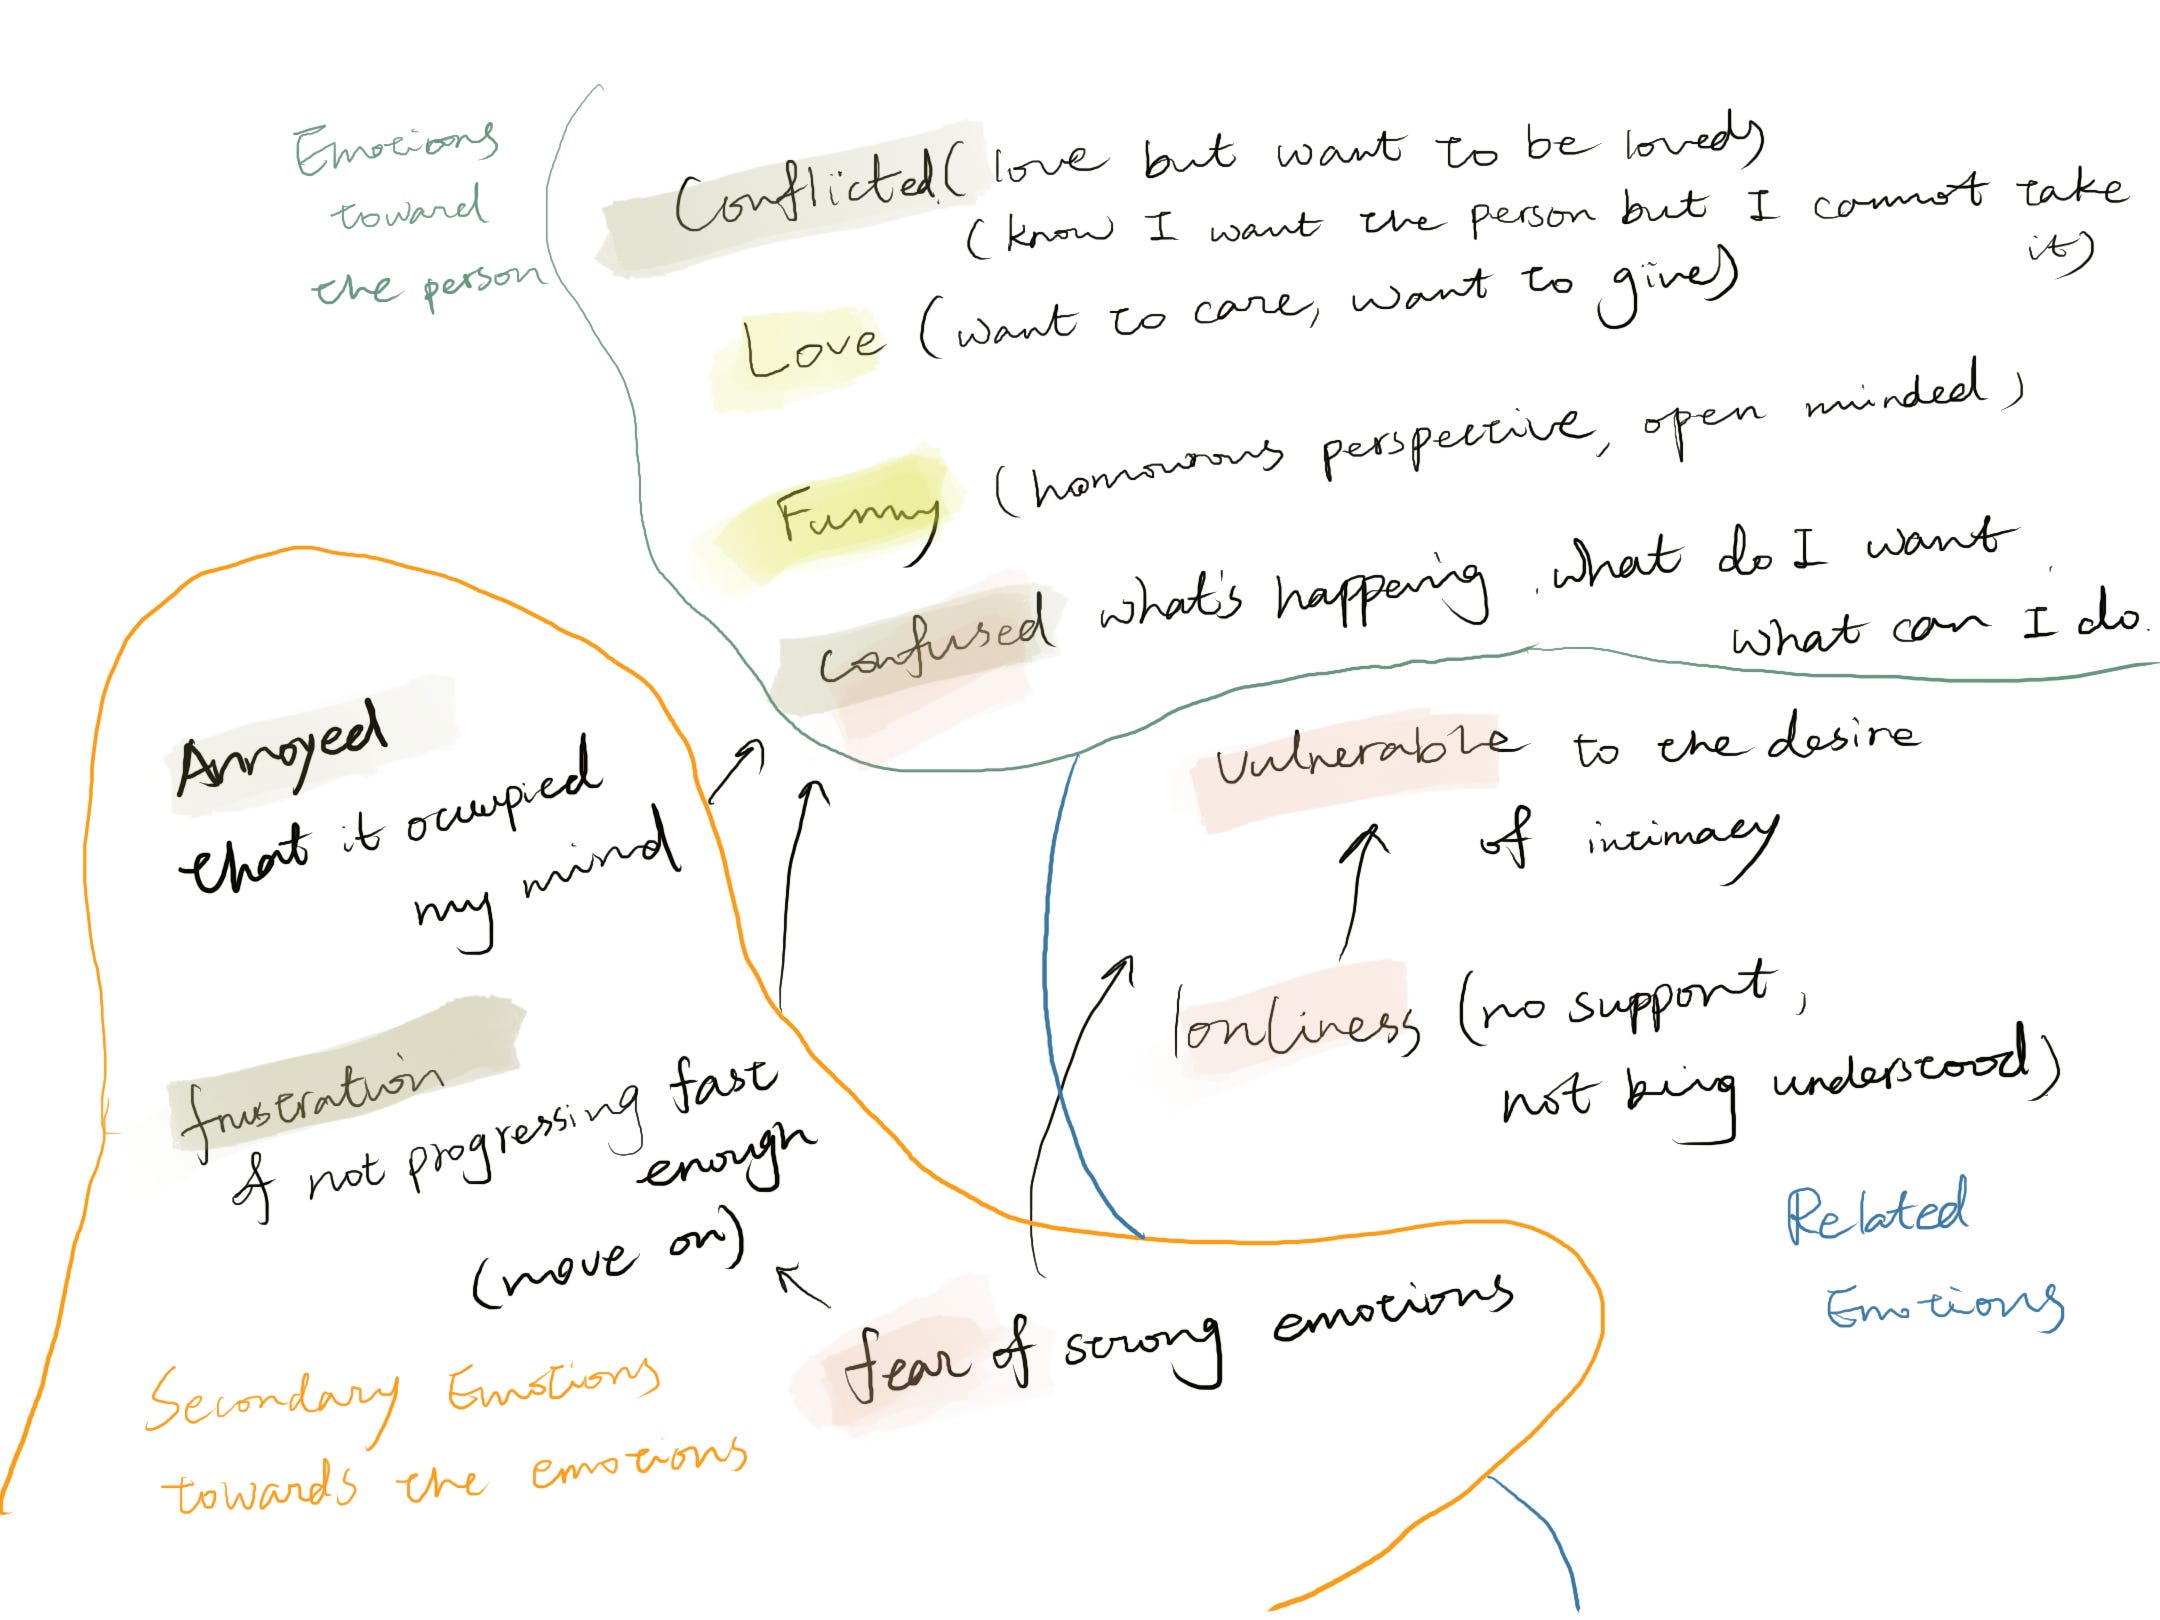 Emotions
toward
the person
Conflicted (love but want to be loved)
(know I want the person but I cannot take
it)
Love (want to care, want to give)
Funny (homourous perspective, open minded)
Confused what's happening, what do I want
what can I do.
Annoyed
that it occupied
my mind
frustration
of not progressing fast
enough
(move on)
fear of strong emotions
Secondary Emotions
towards the emotions
Vulnerable to the desire
of intimacy
lonliness (no support,
not being understood)
Related
Emotions